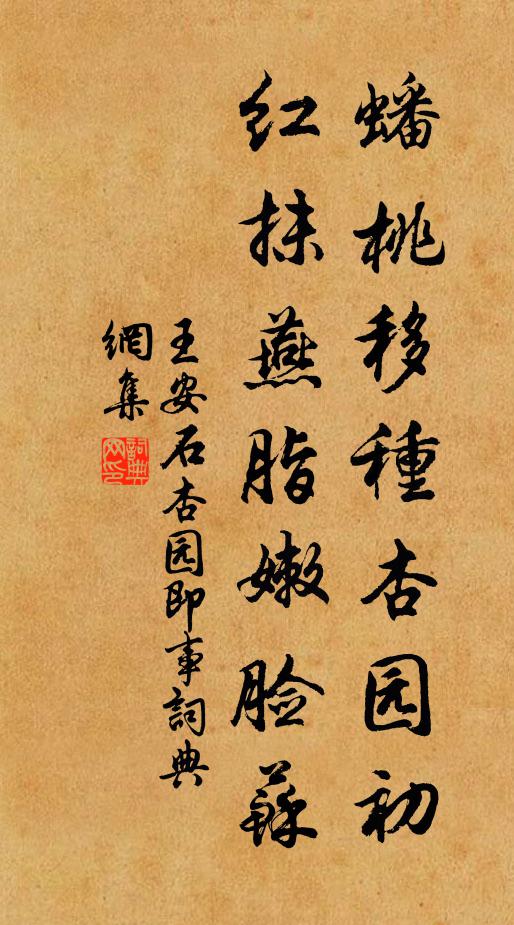 蟠桃移種杏园初
红抹燕脂嫩脸蘇
王安石杏园即事詞典
網集
詞典
网印